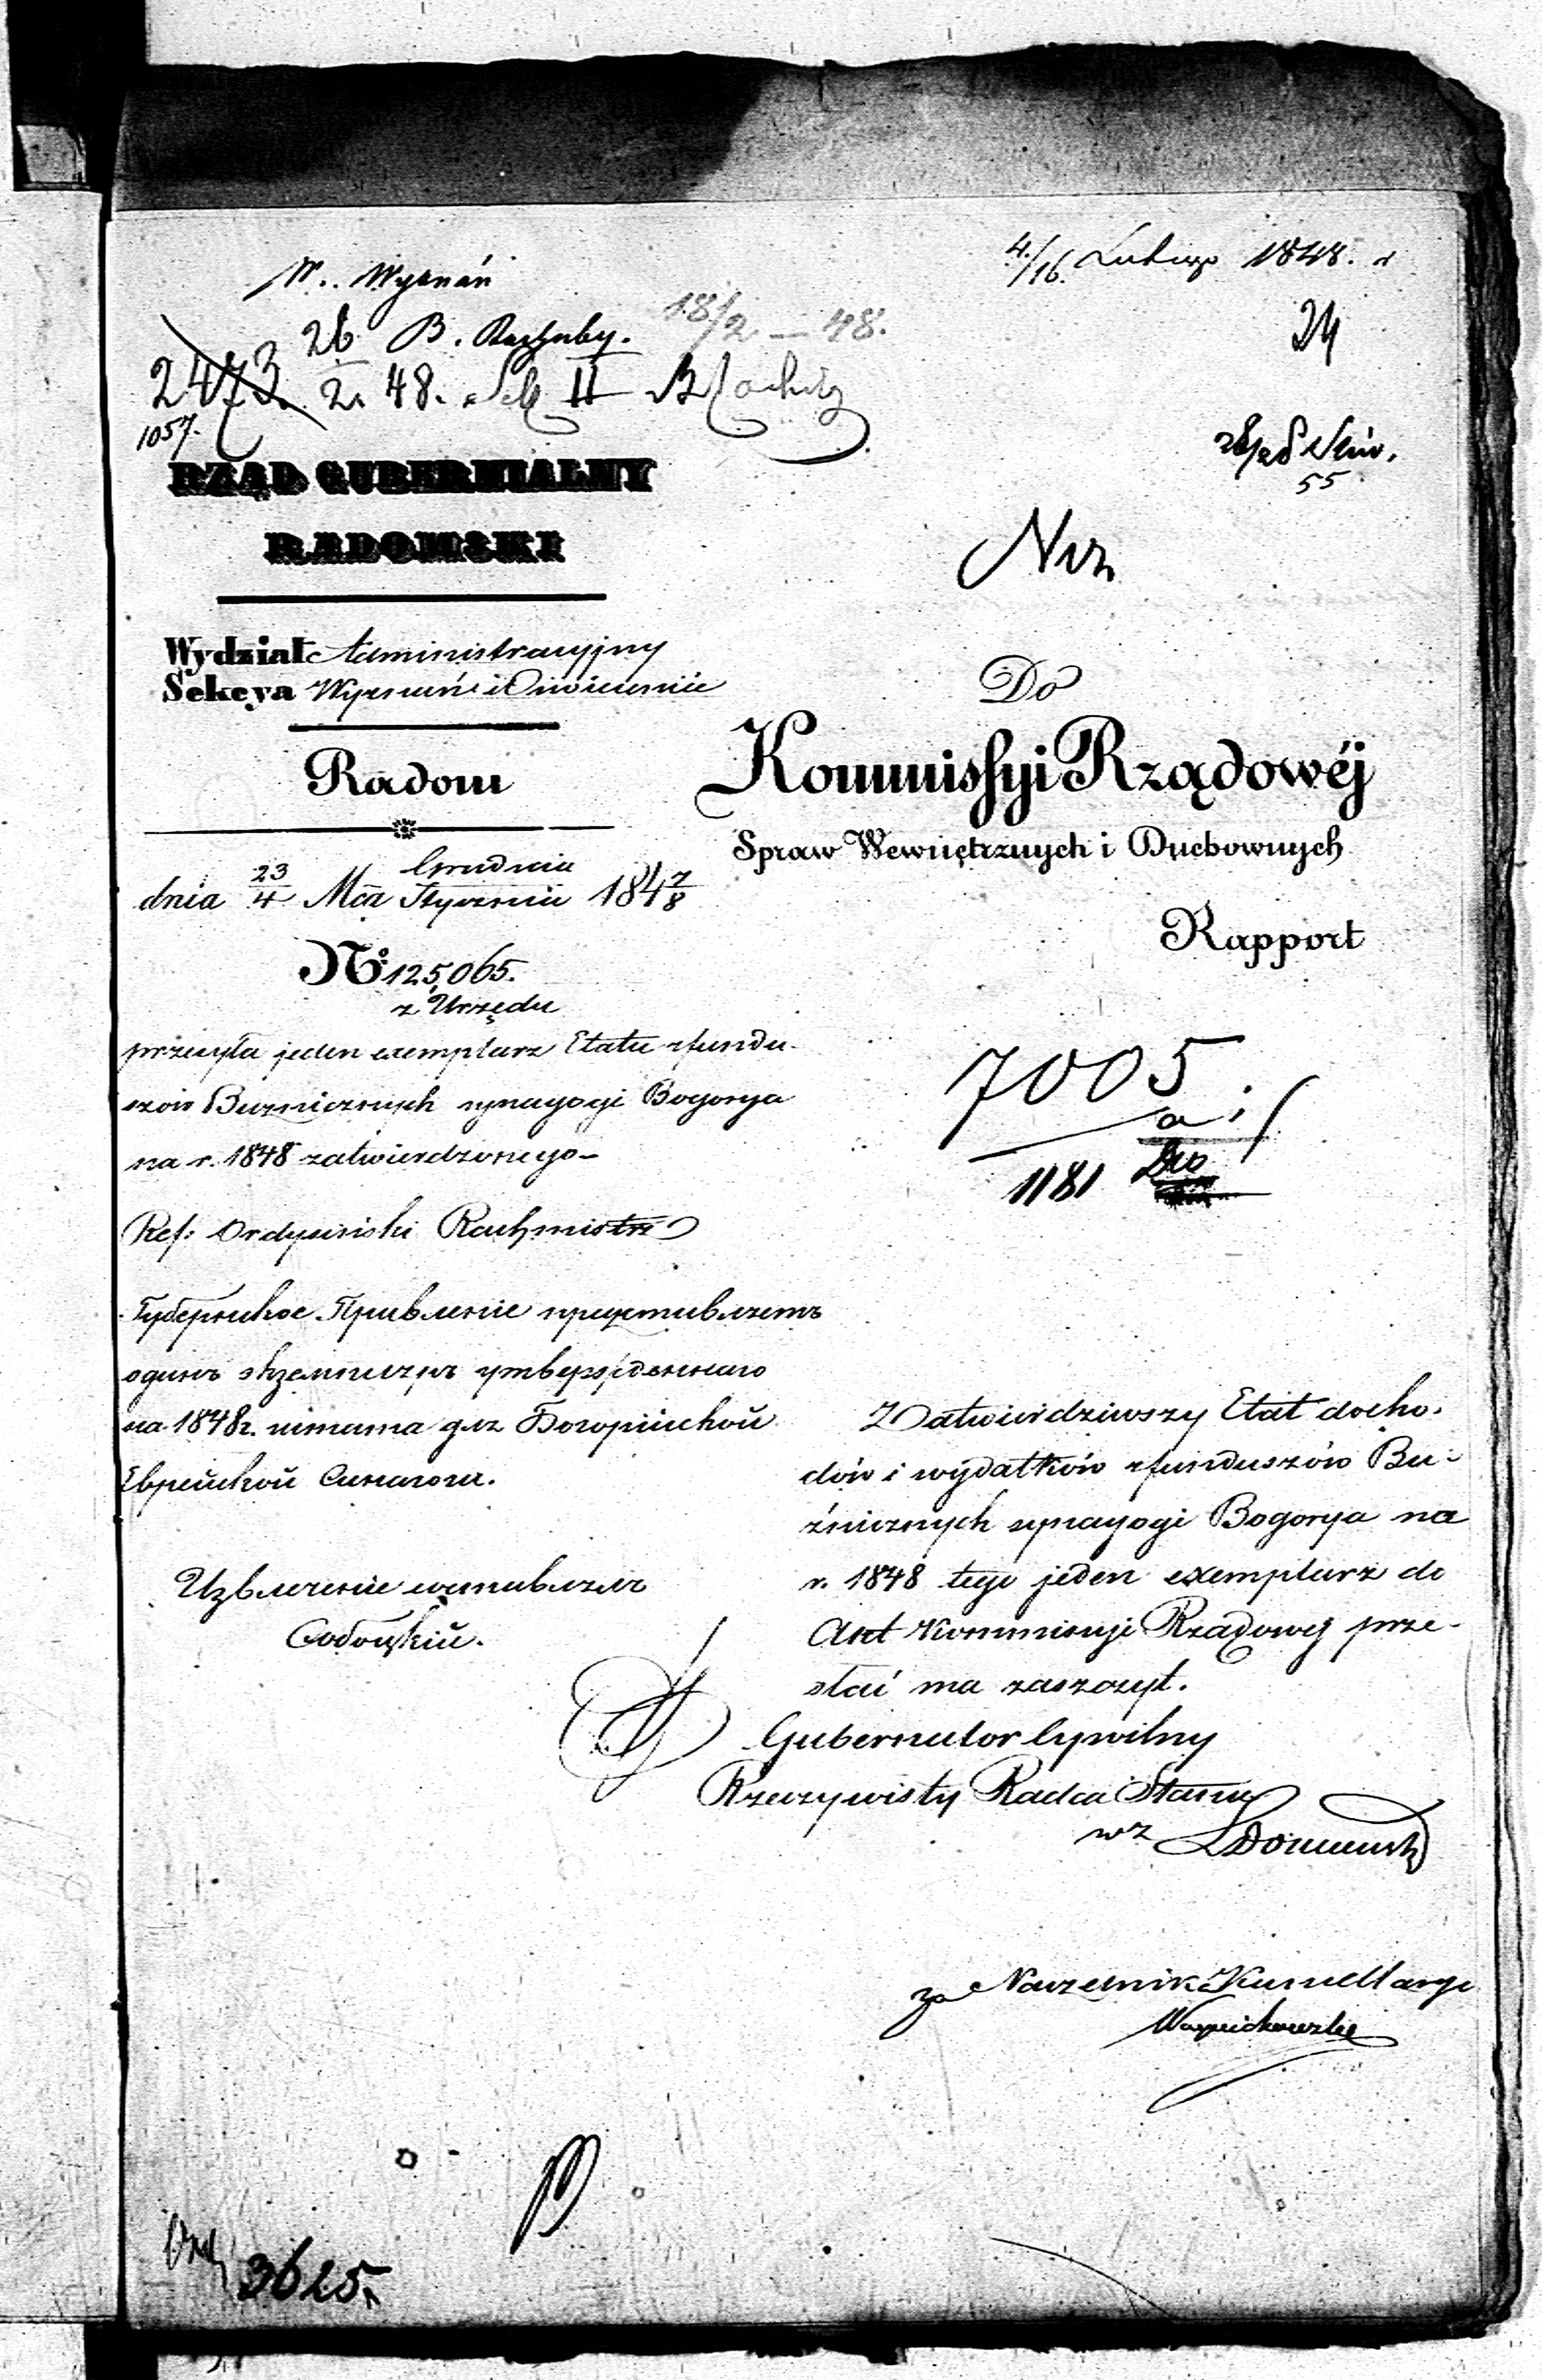 W. Wyznań
4/16 Lutego 1848. r
24
26 B. Rachuby. 18/2 — 48.
2473. 2. 48. Sek II
1057.
55
RZĄD GUBERNIALNY
RADOMSKI
Wydział Administracyjny
Sekcya Wyznań i Oświecenia
Radom
dnia 23/4 Mca Grudnia/Stycznia 1847/8
No. 125,065.
z Urzędu
przesyła jeden exemplarz Etatu zfundu-
szów Bużnicznych synagogi Bogorya
na r. 1848 zatwierdzonego-
Ref: Ordyński Rachmistrz
Губернское Правление представляетъ
одинъ экземпляръ утвержденнаго
на 1848 г. штата для Богорійской
Еврейской Синагоги.
Извлеченіе составлялъ
Do
Kommissyi Rządowéj
Spraw Wewnętrznych i Duchownych
Rapport
7005
a
1181
Zatwierdziwszy Etat docho-
dów i wydatków zfunduszów Bu-
źnicznych synagogi Bogorya na
r. 1848 tego jeden exemplarz do
Akt Kommissyi Rządowej prze-
słać ma zaszczyt.
Gubernator Cywilny
Rzeczywisty Radca Stanu
wz
za Naczelnik Kancellaryi
3625.